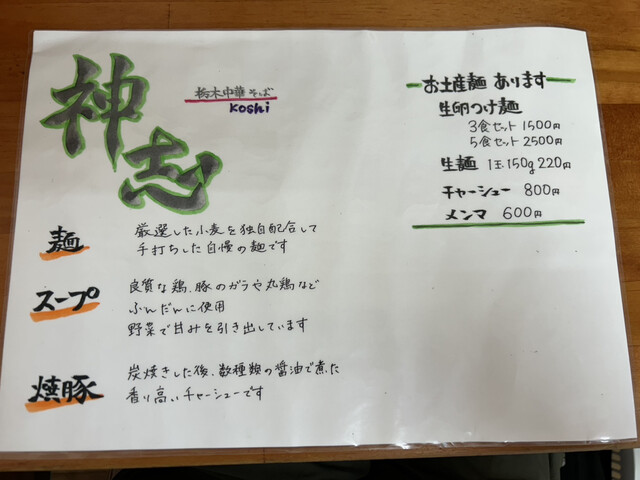 神志
栃木中華そば
KOShi
麺
厳選した小麦を独自配合して
手打ちした自慢の麺です
スープ
良質な鶏、豚のガラや丸鶏など
ふんだんに使用
野菜で甘みを引き出しています
焼豚
炭焼きした後、数種類の醤油で煮た
香り高いチャーシューです
お土産麺 あります
生卵つけ麺
3食セット 1500円
5食セット 2500円
生麺 1玉150g 220円
チャーシュー 800円
メンマ 600円